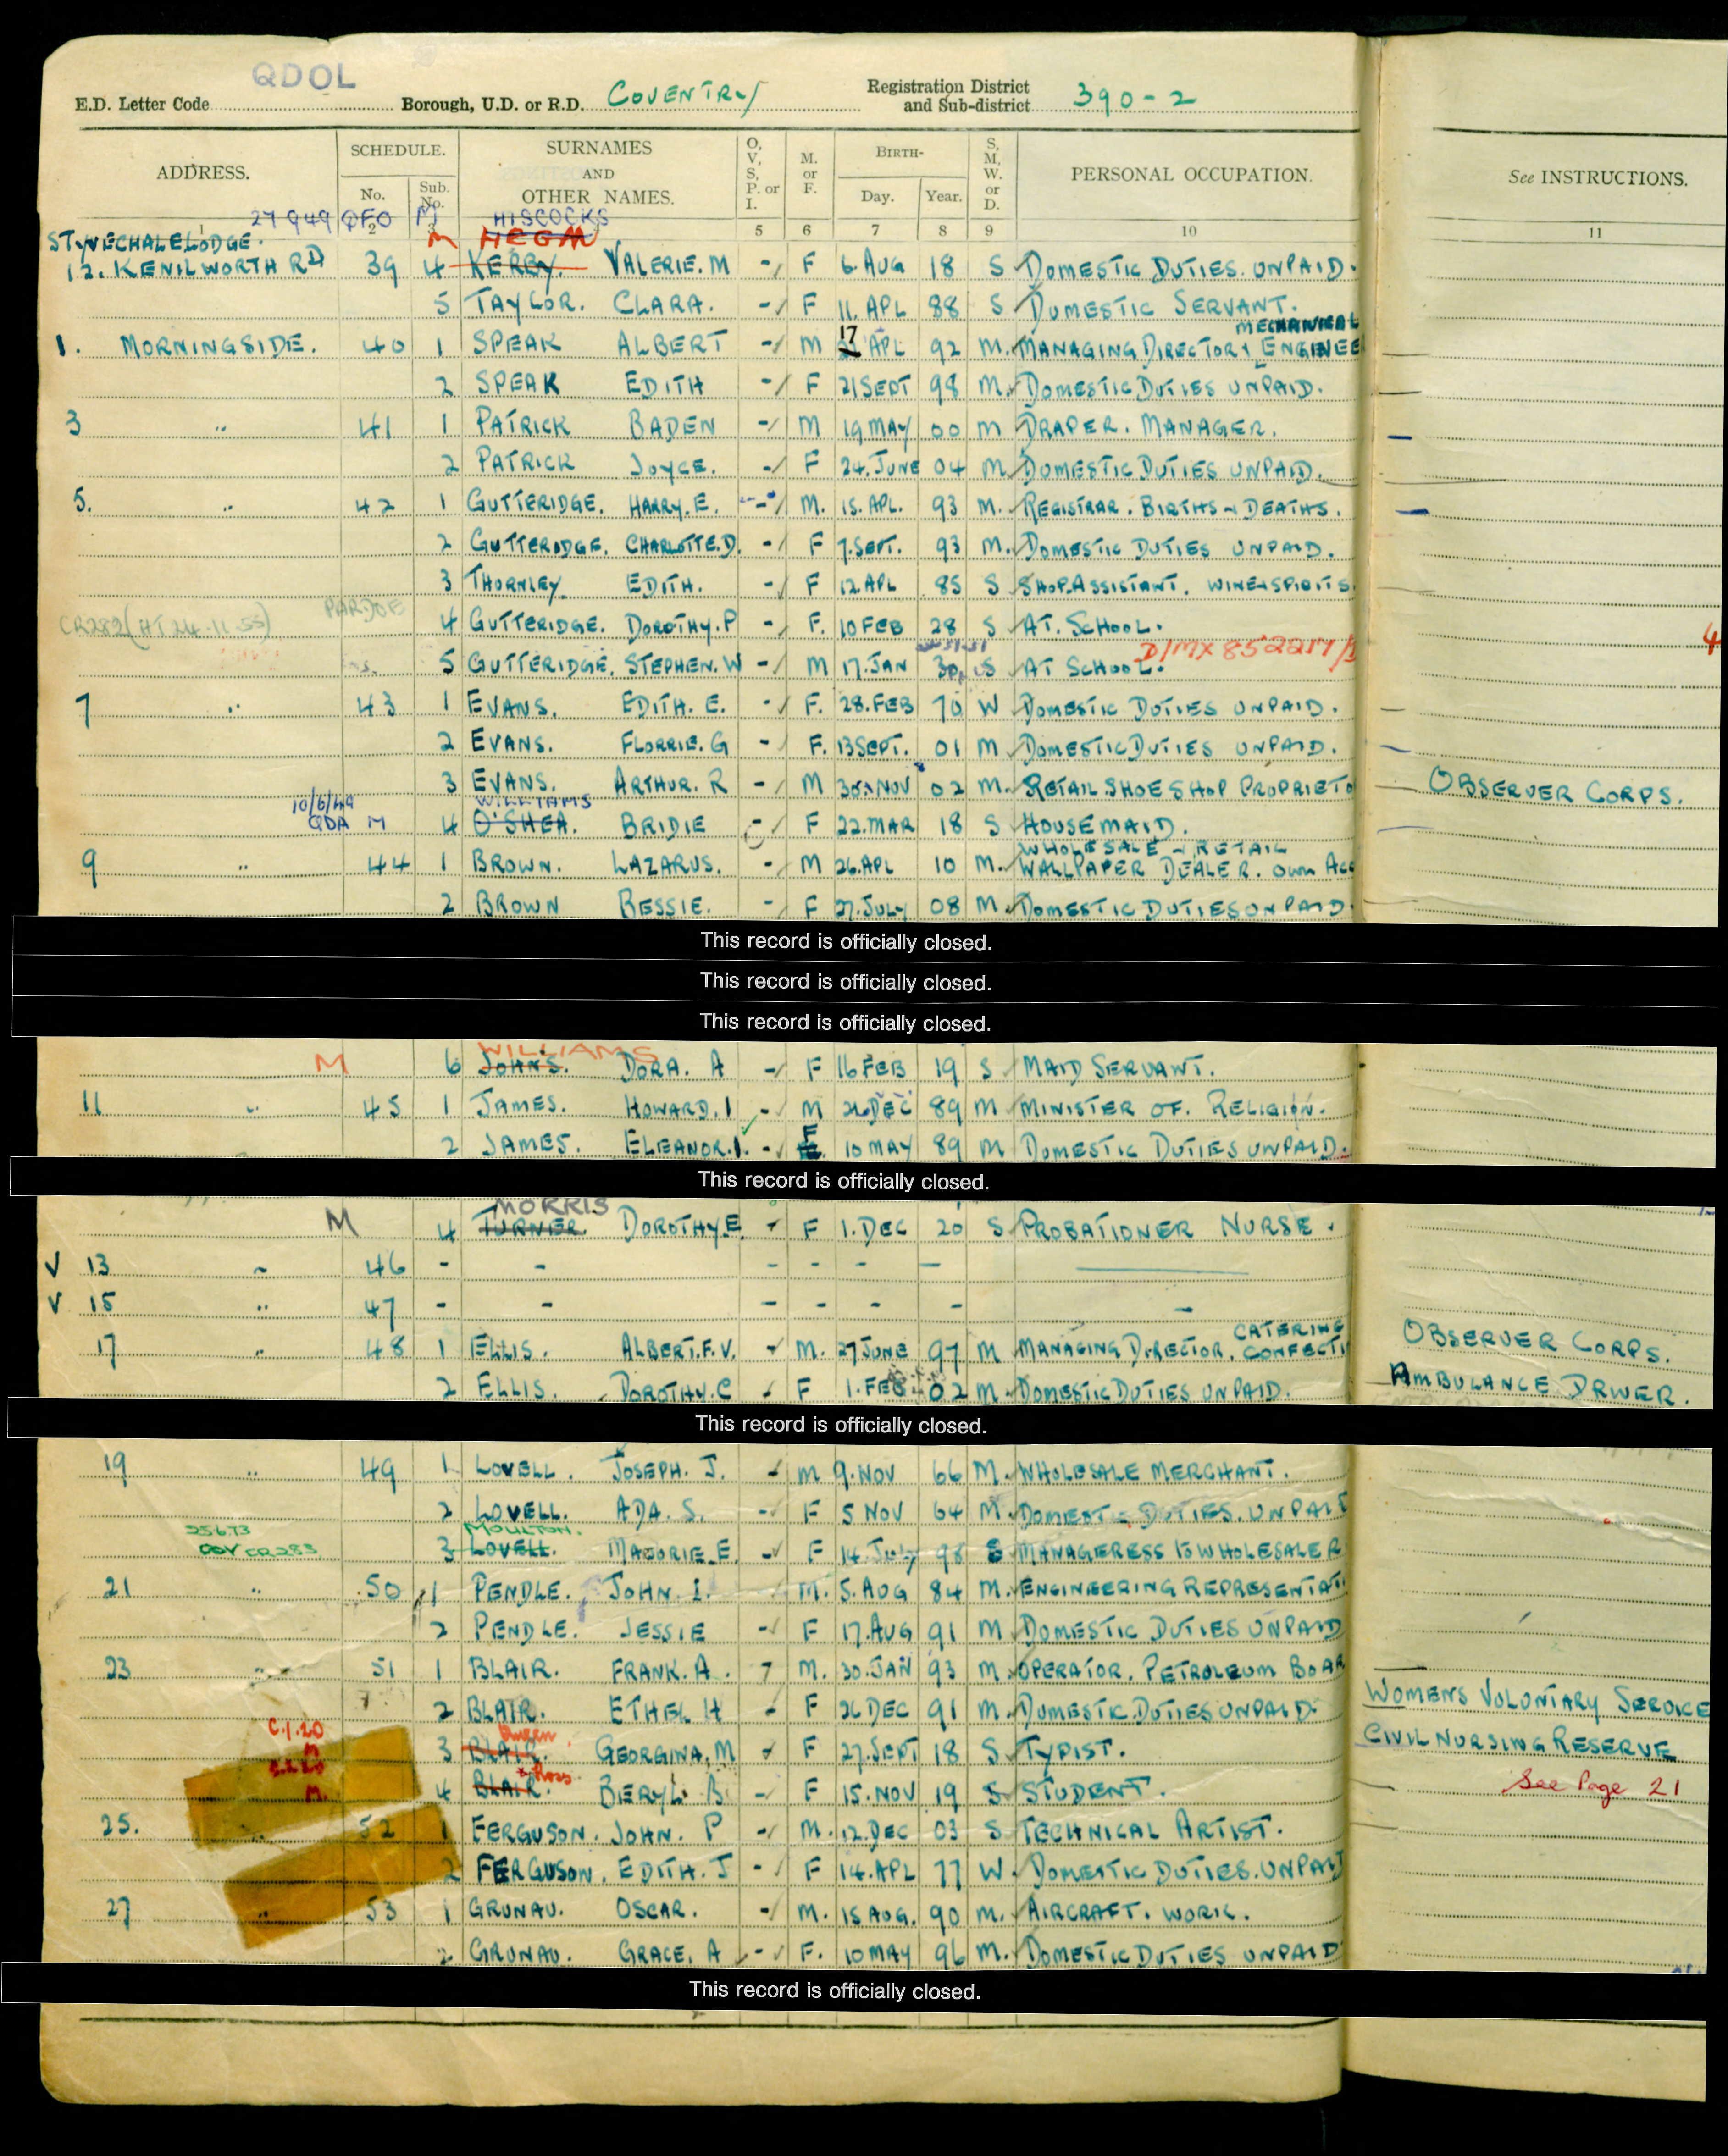 QDOL
E.D. Letter Code Borough, U.D. or R.D. COVENTRY Registration District and Sub-district 390-2
ADDRESS. SCHEDULE. No. Sub. No. SURNAMES AND OTHER NAMES. O, V, S, P. or I. M. or F. BIRTH- Day. Year. S, M, W. or D. PERSONAL OCCUPATION. See INSTRUCTIONS.
1 2 3 5 6 7 8 9 10 11
27949 QFO M HISCOCKS
STYVECHALE LODGE. M HEGM
12. KENILWORTH RD 39 4 KERBY. VALERIE. M - F 6. AUG 18 S DOMESTIC DUTIES. UNPAID.
5 TAYLOR. CLARA. - F 11. APL 88 S DOMESTIC SERVANT.
MECHANICAL
1. MORNINGSIDE. 40 1 SPEAK ALBERT - M 17 APL 92 M. MANAGING DIRECTOR, ENGINEE
2 SPEAK EDITH - F 21 SEPT 98 M. DOMESTIC DUTIES UNPAID.
3 " 41 1 PATRICK BADEN - M 19 MAY 00 M DRAPER. MANAGER.
2 PATRICK JOYCE. - F 24. JUNE 04 M DOMESTIC DUTIES UNPAID.
5. " 42 1 GUTTERIDGE. HARRY. E. - M. 15. APL. 93 M. REGISTRAR. BIRTHS & DEATHS.
2 GUTTERIDGE. CHARLOTTE. D. - F 7. SEPT. 93 M. DOMESTIC DUTIES UNPAID.
3 THORNLEY EDITH. - F 12 APL 85 S SHOP ASSISTANT. WINE & SPIRITS.
PARDOE
CR282 (HT 24-11-55) 4 GUTTERIDGE. DOROTHY. P - F. 10 FEB 28 S AT. SCHOOL.
D/MX 852217/
5 GUTTERIDGE. STEPHEN. W - M 17. JAN 30 S AT SCHOOL.
7 " 43 1 EVANS. EDITH. E. - F. 28. FEB 70 W DOMESTIC DUTIES UNPAID.
2 EVANS. FLORRIE. G - F. 13 SEPT. 01 M DOMESTIC DUTIES UNPAID.
3 EVANS. ARTHUR. R - M 30 NOV 02 M. RETAIL SHOE SHOP PROPRIETO OBSERVER CORPS.
10/6/49 WILLIAMS
QDA M 4 O'SHEA. BRIDIE - F 22. MAR 18 S HOUSEMAID.
WHOLESALE & RETAIL
9 " 44 1 BROWN. LAZARUS. - M 26. APL 10 M. WALLPAPER DEALER. OWN ACC
2 BROWN BESSIE. - F 27. JULY 08 M. DOMESTIC DUTIES UNPAID.
This record is officially closed.
This record is officially closed.
This record is officially closed.
WILLIAMS
M 6 JOHNS. DORA. A - F 16 FEB 19 S MAID SERVANT.
11 " 45 1 JAMES. HOWARD. I - M DEC 89 M MINISTER OF. RELIGION.
2 JAMES. ELEANOR. I. - F 10 MAY 89 M DOMESTIC DUTIES UNPAID.
This record is officially closed.
MORRIS
M 4 TURNER DOROTHY. E. - F 1. DEC 20 S PROBATIONER NURSE.
V 13 " 46 - - - - - -
V 15 " 47 - - - - - - -
CATERING
17 " 48 1 ELLIS. ALBERT. F. V. - M. 27 JUNE 97 M MANAGING DIRECTOR. CONFECTI OBSERVER CORPS.
2 ELLIS. DOROTHY. C - F 1. FEB 02 M. DOMESTIC DUTIES UNPAID. AMBULANCE DRIVER.
This record is officially closed.
19 " 49 1 LOVELL. JOSEPH. J. - M 9. NOV 66 M. WHOLESALE MERCHANT.
2 LOVELL. ADA. S. - F 5 NOV 64 M. DOMESTIC DUTIES. UNPAID
25673 MOULTON.
COV CR283 3 LOVELL. MAJORIE. E. - F 14. JULY 98 S MANAGERESS TO WHOLESALER
21 " 50 1 PENDLE. JOHN. I. M. 5. AUG 84 M. ENGINEERING REPRESENTATI
2 PENDLE. JESSIE - F 17. AUG 91 M DOMESTIC DUTIES UNPAID
23 " 51 1 BLAIR. FRANK. A. - M. 30. JAN 93 M. OPERATOR. PETROLEUM BOAR
2 BLAIR. ETHEL H - F 26 DEC 91 M. DOMESTIC DUTIES UNPAID. WOMENS VOLUNTARY SERVICE
C.1.20 Queen.
M 3 BLAIR. GEORGINA. M - F 27. SEPT 18 S TYPIST. CIVIL NURSING RESERVE
Ross
M. 4 BLAIR. BERYL. B. - F 15. NOV 19 S STUDENT. See Page 21
25. " 52 1 FERGUSON. JOHN. P - M. 12. DEC 03 S TECHNICAL ARTIST.
2 FERGUSON. EDITH. J - F 14. APL 77 W. DOMESTIC DUTIES. UNPAID
27 " 53 1 GRUNAU. OSCAR. - M. 15 AUG. 90 M. AIRCRAFT. WORK.
2 GRUNAU. GRACE. A - F. 10 MAY 96 M. DOMESTIC DUTIES UNPAID
This record is officially closed.